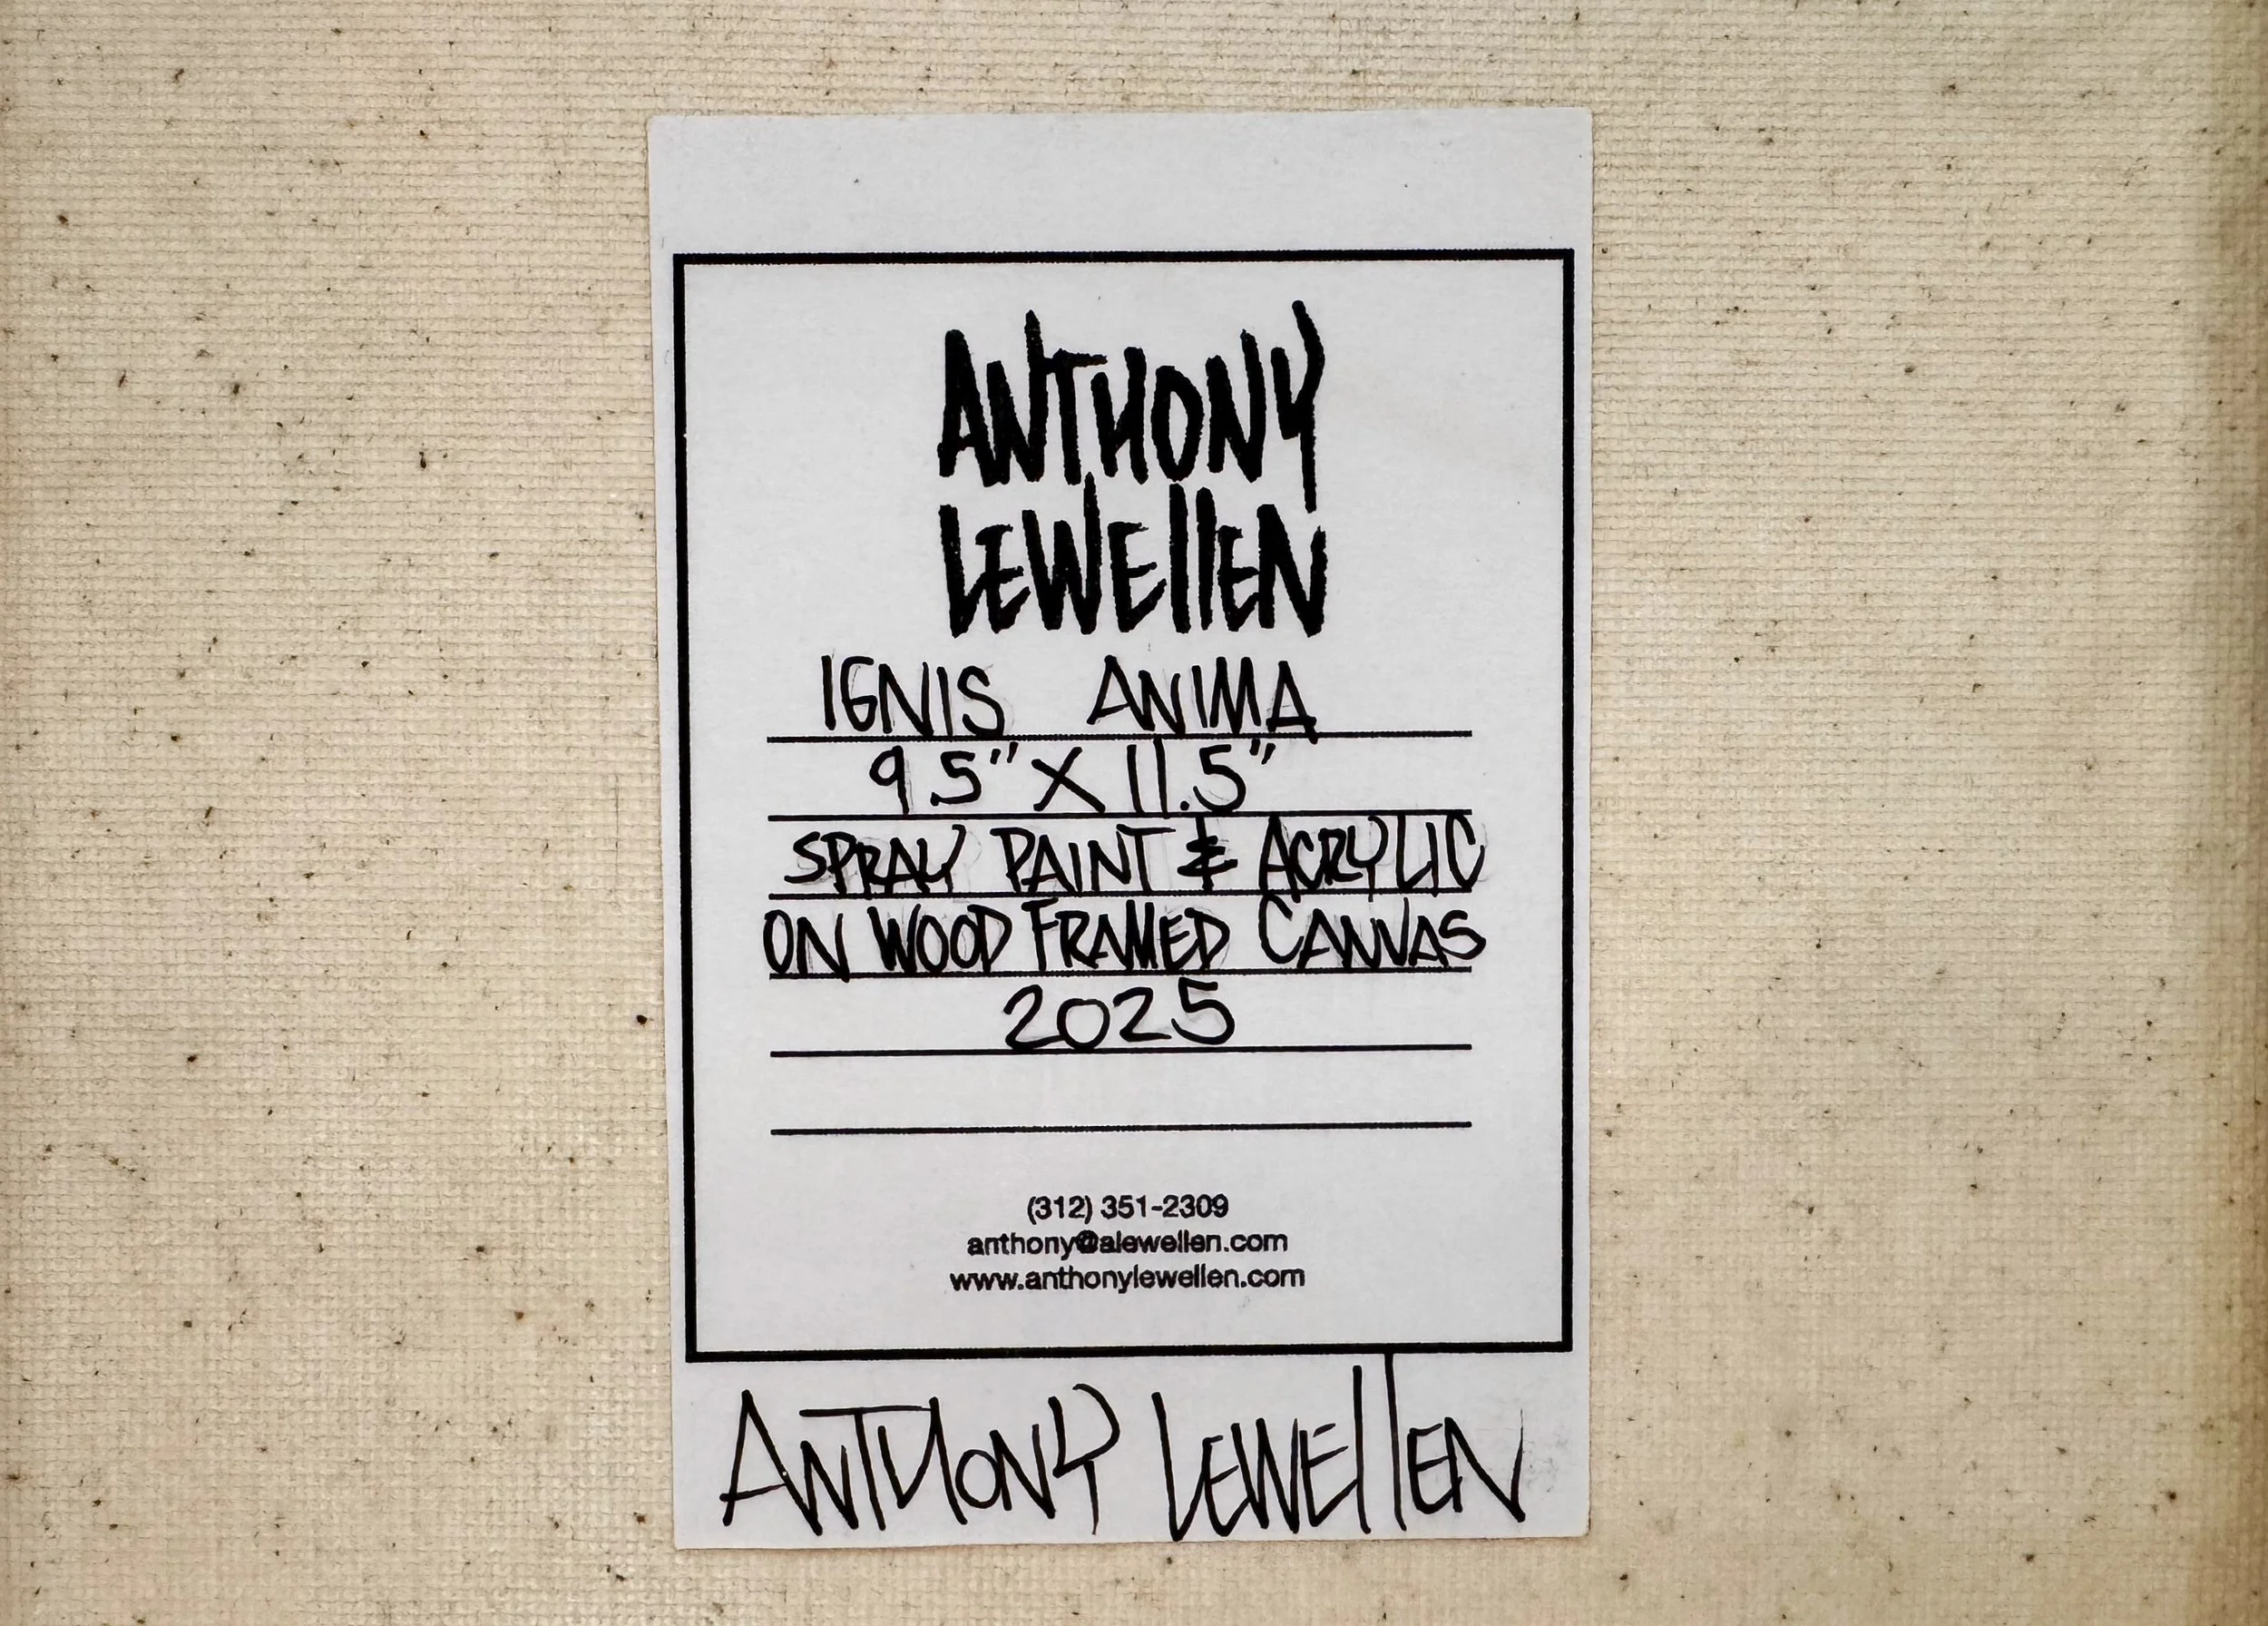 ANTHONY
LEWELLEN
IGNIS ANIMA
9.5" X 11.5"
SPRAY PAINT & ACRYLIC
ON WOOD FRAMED CANVAS
2025
(312) 351-2309
anthony@alewellen.com
www.anthonylewellen.com
ANTHONY LEWELLEN